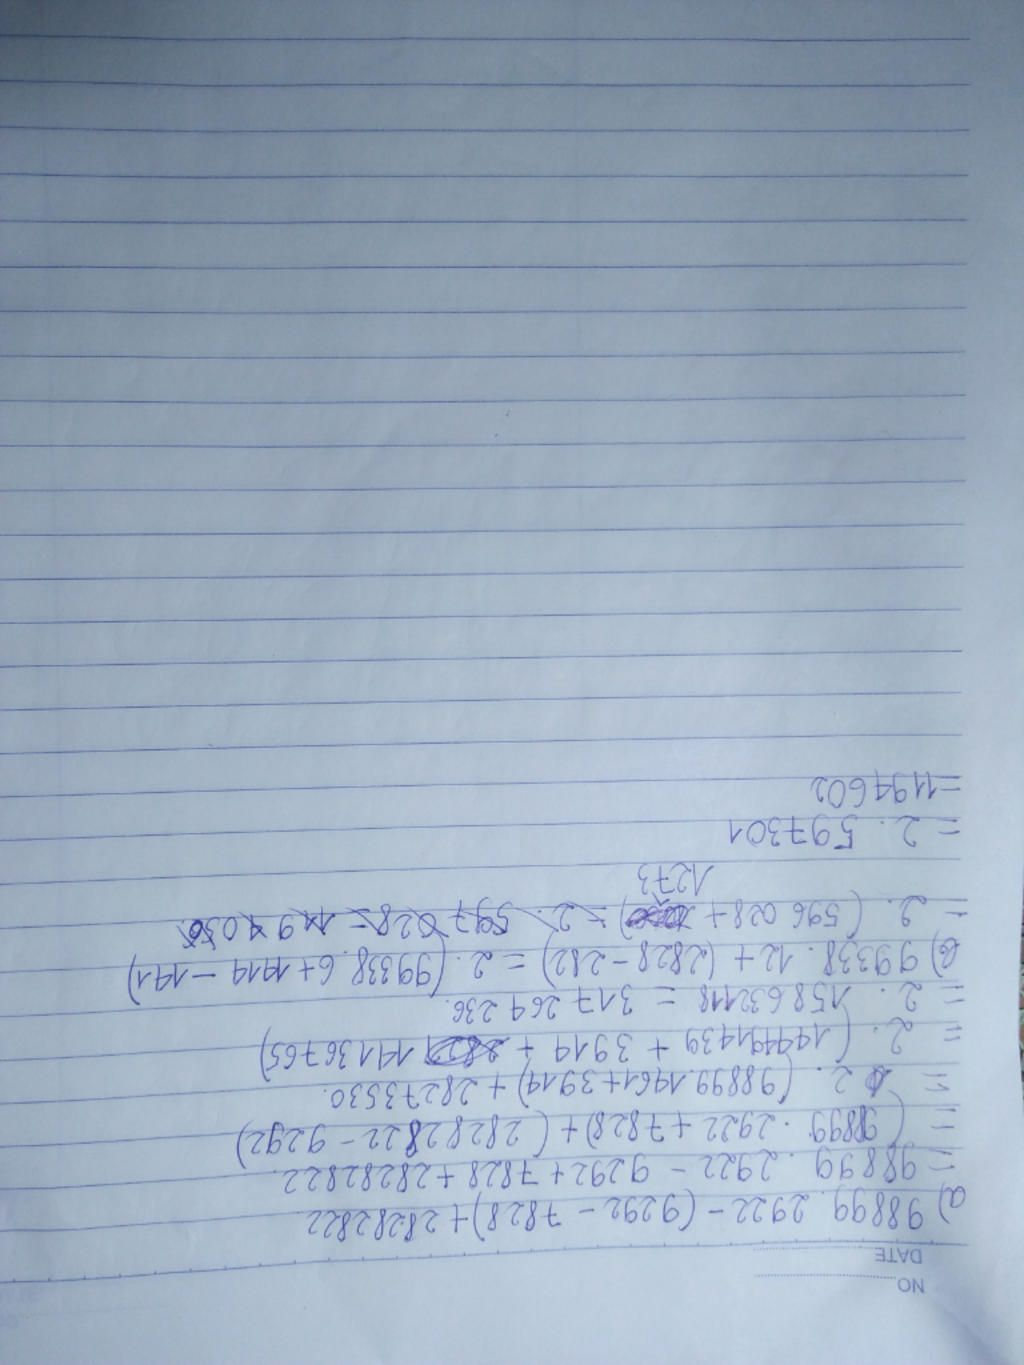 NO
DATE
a) 98899. 2922 - (9292 - 7828) + 28282822
= 98899 . 2922 - 9292 + 7828 + 28282822
= (98899 . 2922 + 7828) + (28282822 - 9292)
= 2. (98899.1461 + 3914) + 28273530.
= 2. (144491439 + 3914 + 14136765)
= 2. 158632118 = 317 264 236.
b) 99338. 12 + (2828 - 282) = 2. (99338.6 + 1414 - 141)
= 2. (596 028 + 1273) = 2. 597 028 = 1194056.
= 2. 597301
= 1194602